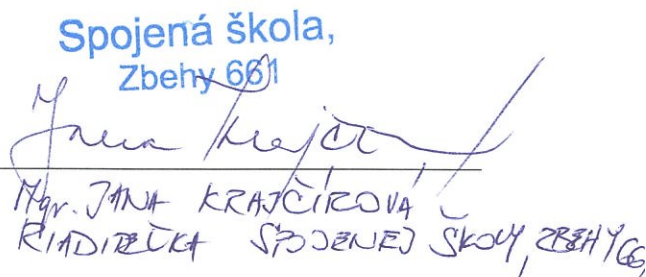 Spojená škola,
Zbehy 661
Jana Krajčír
Mgr. JANA KRAJČÍROVÁ
RIADITEĽKA SPOJENEJ ŠKOLY, ZBEHY 661